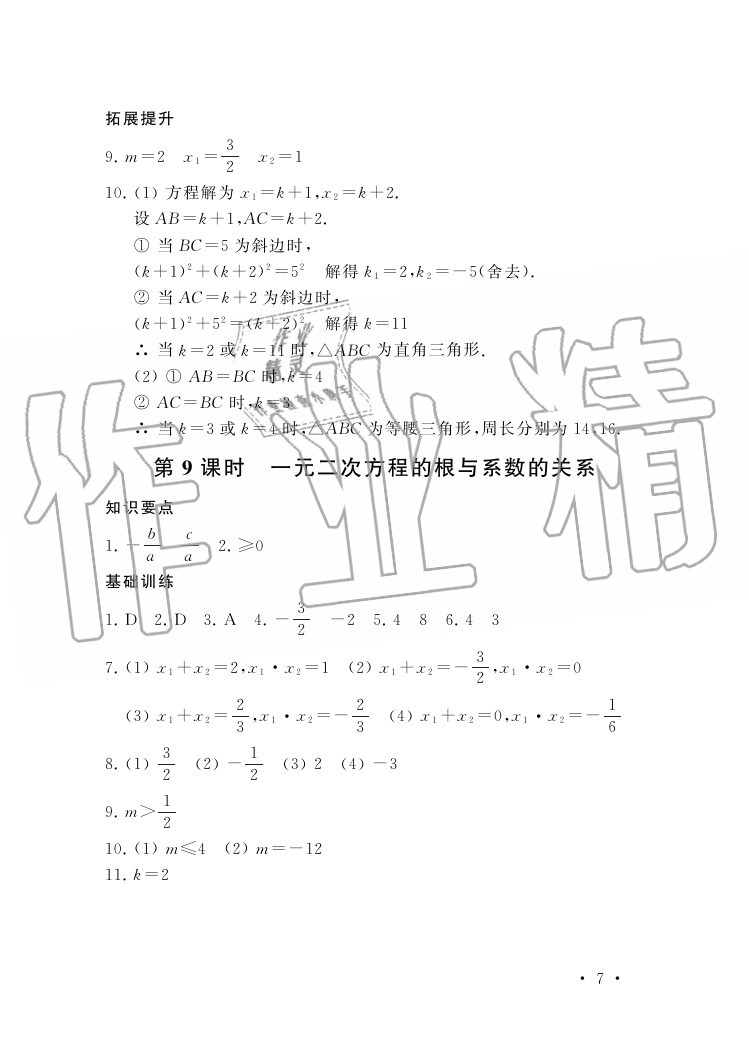 拓展提升
9. m=2  x₁=3/2  x₂=1
10. (1) 方程解为 x₁=k+1,x₂=k+2.
设 AB=k+1,AC=k+2.
① 当 BC=5 为斜边时,
(k+1)²+(k+2)²=5²  解得 k₁=2,k₂=-5(舍去).
② 当 AC=k+2 为斜边时,
(k+1)²+5²=(k+2)²  解得 k=11
∴ 当 k=2 或 k=11 时,△ABC 为直角三角形.
(2) ① AB=BC 时,k=4
② AC=BC 时,k=3
∴ 当 k=3 或 k=4 时,△ABC 为等腰三角形,周长分别为 14,16.
第 9 课时  一元二次方程的根与系数的关系
知识要点
1. -b/a  c/a  2. ≥0
基础训练
1. D  2. D  3. A  4. -3/2  -2  5. 4  8  6. 4  3
7. (1) x₁+x₂=2,x₁·x₂=1  (2) x₁+x₂=-3/2,x₁·x₂=0
(3) x₁+x₂=2/3,x₁·x₂=-2/3  (4) x₁+x₂=0,x₁·x₂=-1/6
8. (1) 3/2  (2) -1/2  (3) 2  (4) -3
9. m>1/2
10. (1) m≤4  (2) m=-12
11. k=2
· 7 ·
作业精
作业
精灵